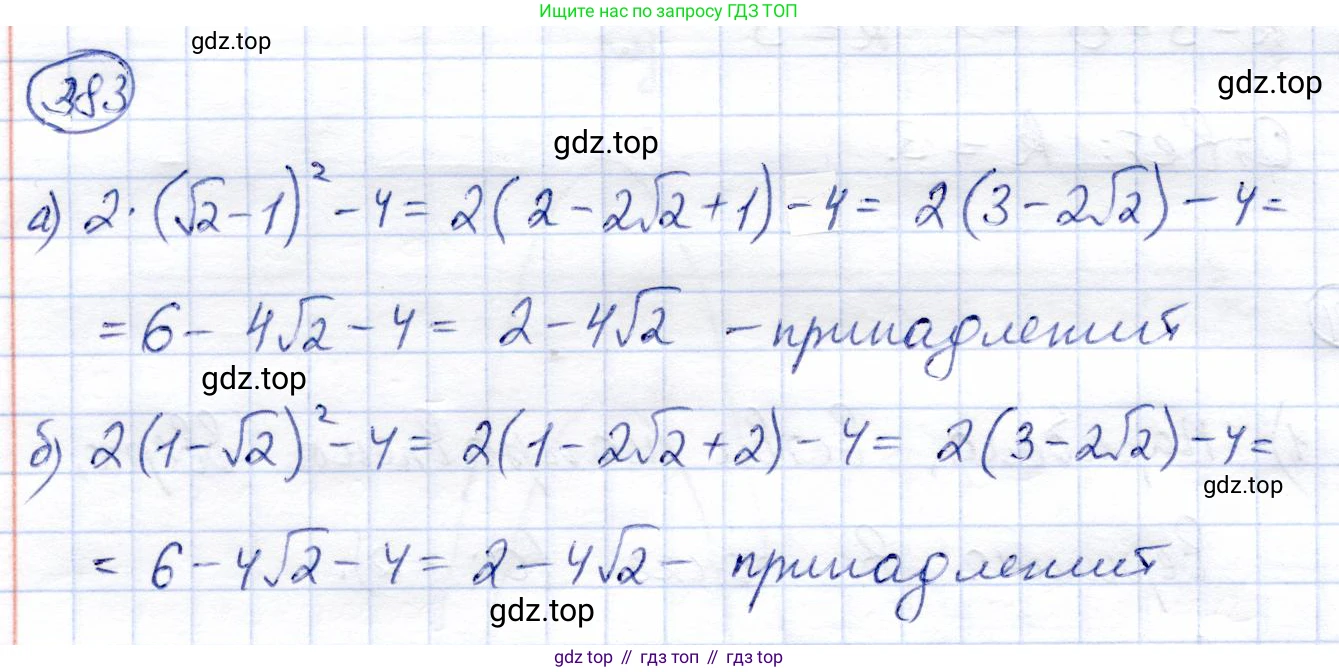 Ищите нас по запросу ГДЗ ТОП
gdz.top
383
gdz.top
gdz.top
а) 2·(√2-1)² - 4 = 2(2 - 2√2 + 1) - 4 = 2(3 - 2√2) - 4 =
= 6 - 4√2 - 4 = 2 - 4√2 - принадлежит
gdz.top
б) 2(1-√2)² - 4 = 2(1 - 2√2 + 2) - 4 = 2(3 - 2√2) - 4 =
gdz.top
= 6 - 4√2 - 4 = 2 - 4√2 - принадлежит
gdz.top
gdz top // гдз топ // гдз top